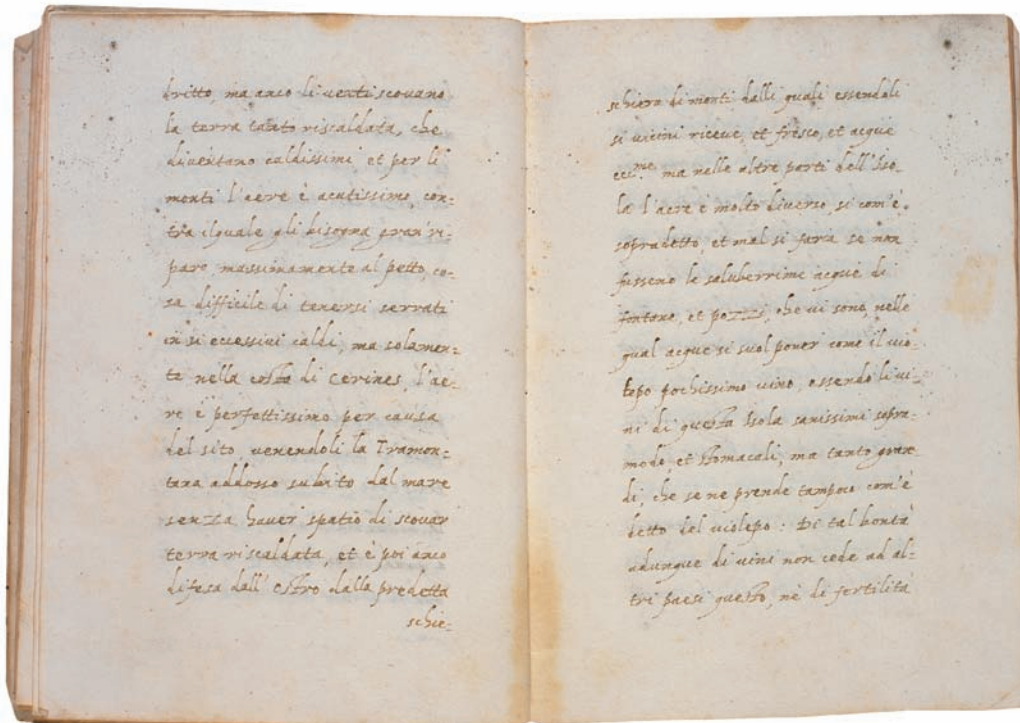 dritto, ma anco li venti scovano
la terra tanto riscaldata, che
diventano caldissimi et per li
monti l'aere è acutissimo, con=
tra il quale gli bisogna gran ri=
paro, massimamente al petto, co=
sa difficile di tenersi serrati
in si eccessivi caldi, ma solamen=
te nella costa di Cerines l'ae=
re è perfettissimo per causa
del sito, venendoli la Tramon=
tana addosso subito dal mare
senza haver spatio di scovar
terra riscaldata, et è poi anco
difesa dall'ostro dalla predetta
schie=
schiera di monti dalli quali essendoli
si vicini riceve, et fresco, et acque
ecc.me ma nelle altre parti dell'Iso=
la l'aere è molto diverso, si com'è
sopradetto, et mal si faria se non
fusseno le saluberrime acque di
fontane, et pozzi, che vi sono, nelle
qual acque si suol poner come il vio=
lepo pochissimo vino, essendo li vi=
ni di questa Isola sanissimi sopra=
modo, et stomacali, ma tanto gran=
di, che se ne prende tampoco com'è
detto del violepo: Di tal bontà
adunque di vini non cede ad al=
tri paesi questo, nè di fertilità